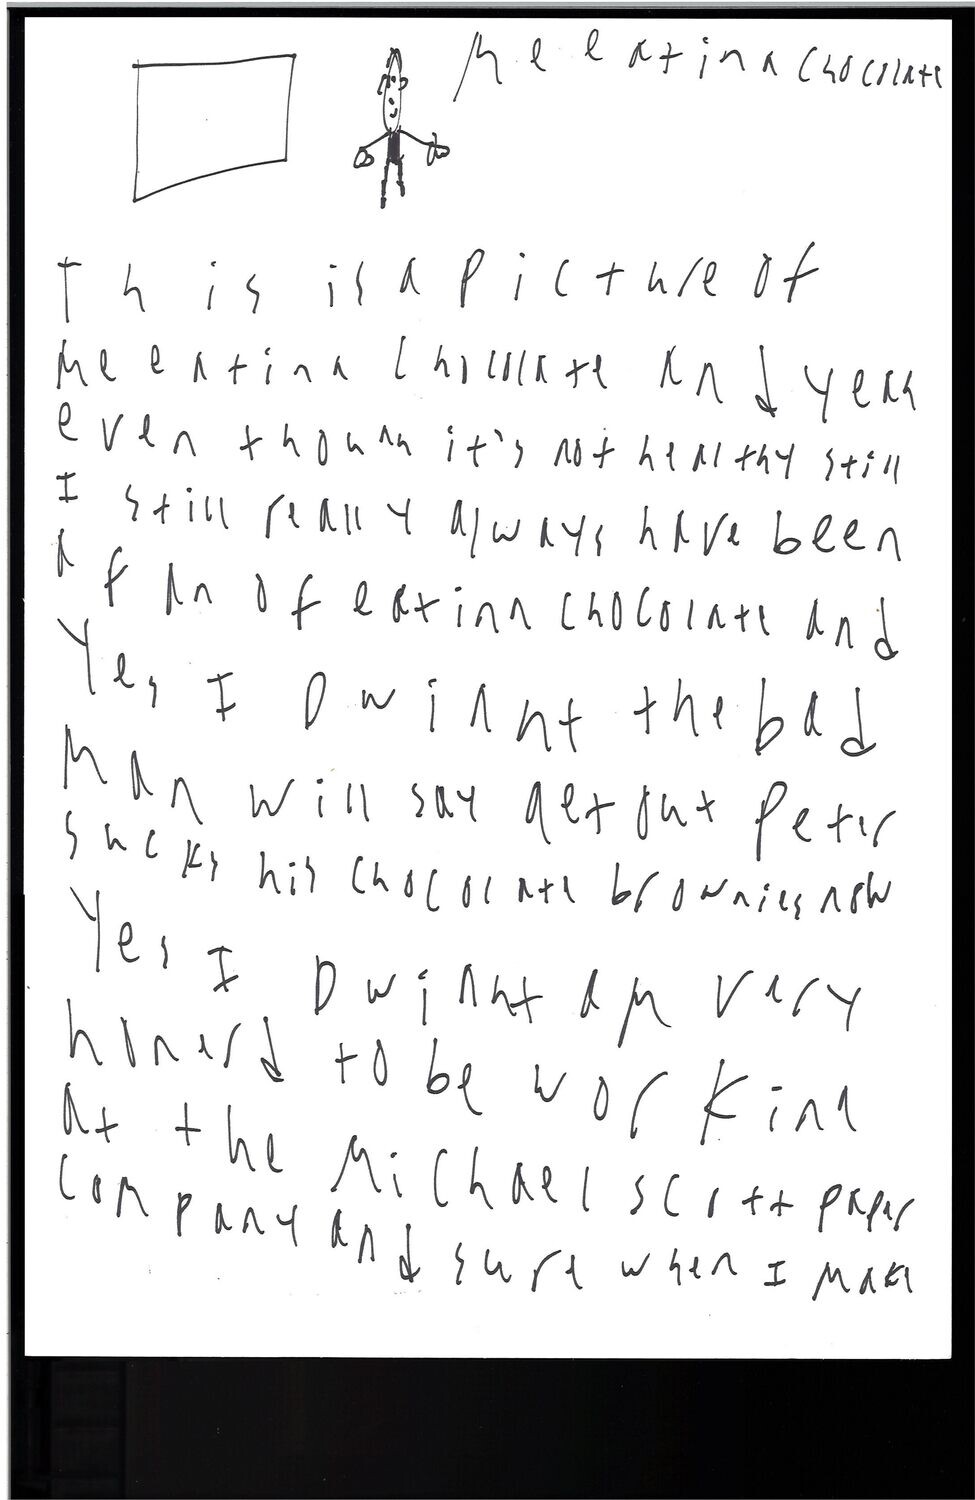 Me eating chocolate
This is a picture of
me eating chocolate and yeah
even though it's not healthy still
I still really always have been
a fan of eating chocolate and
Yes I Dwight the bad
man will say get out Peter
sucks his chocolate brownies now
Yes I Dwight am very
honerd to be working
at the Michael scott paper
company and sure when I make